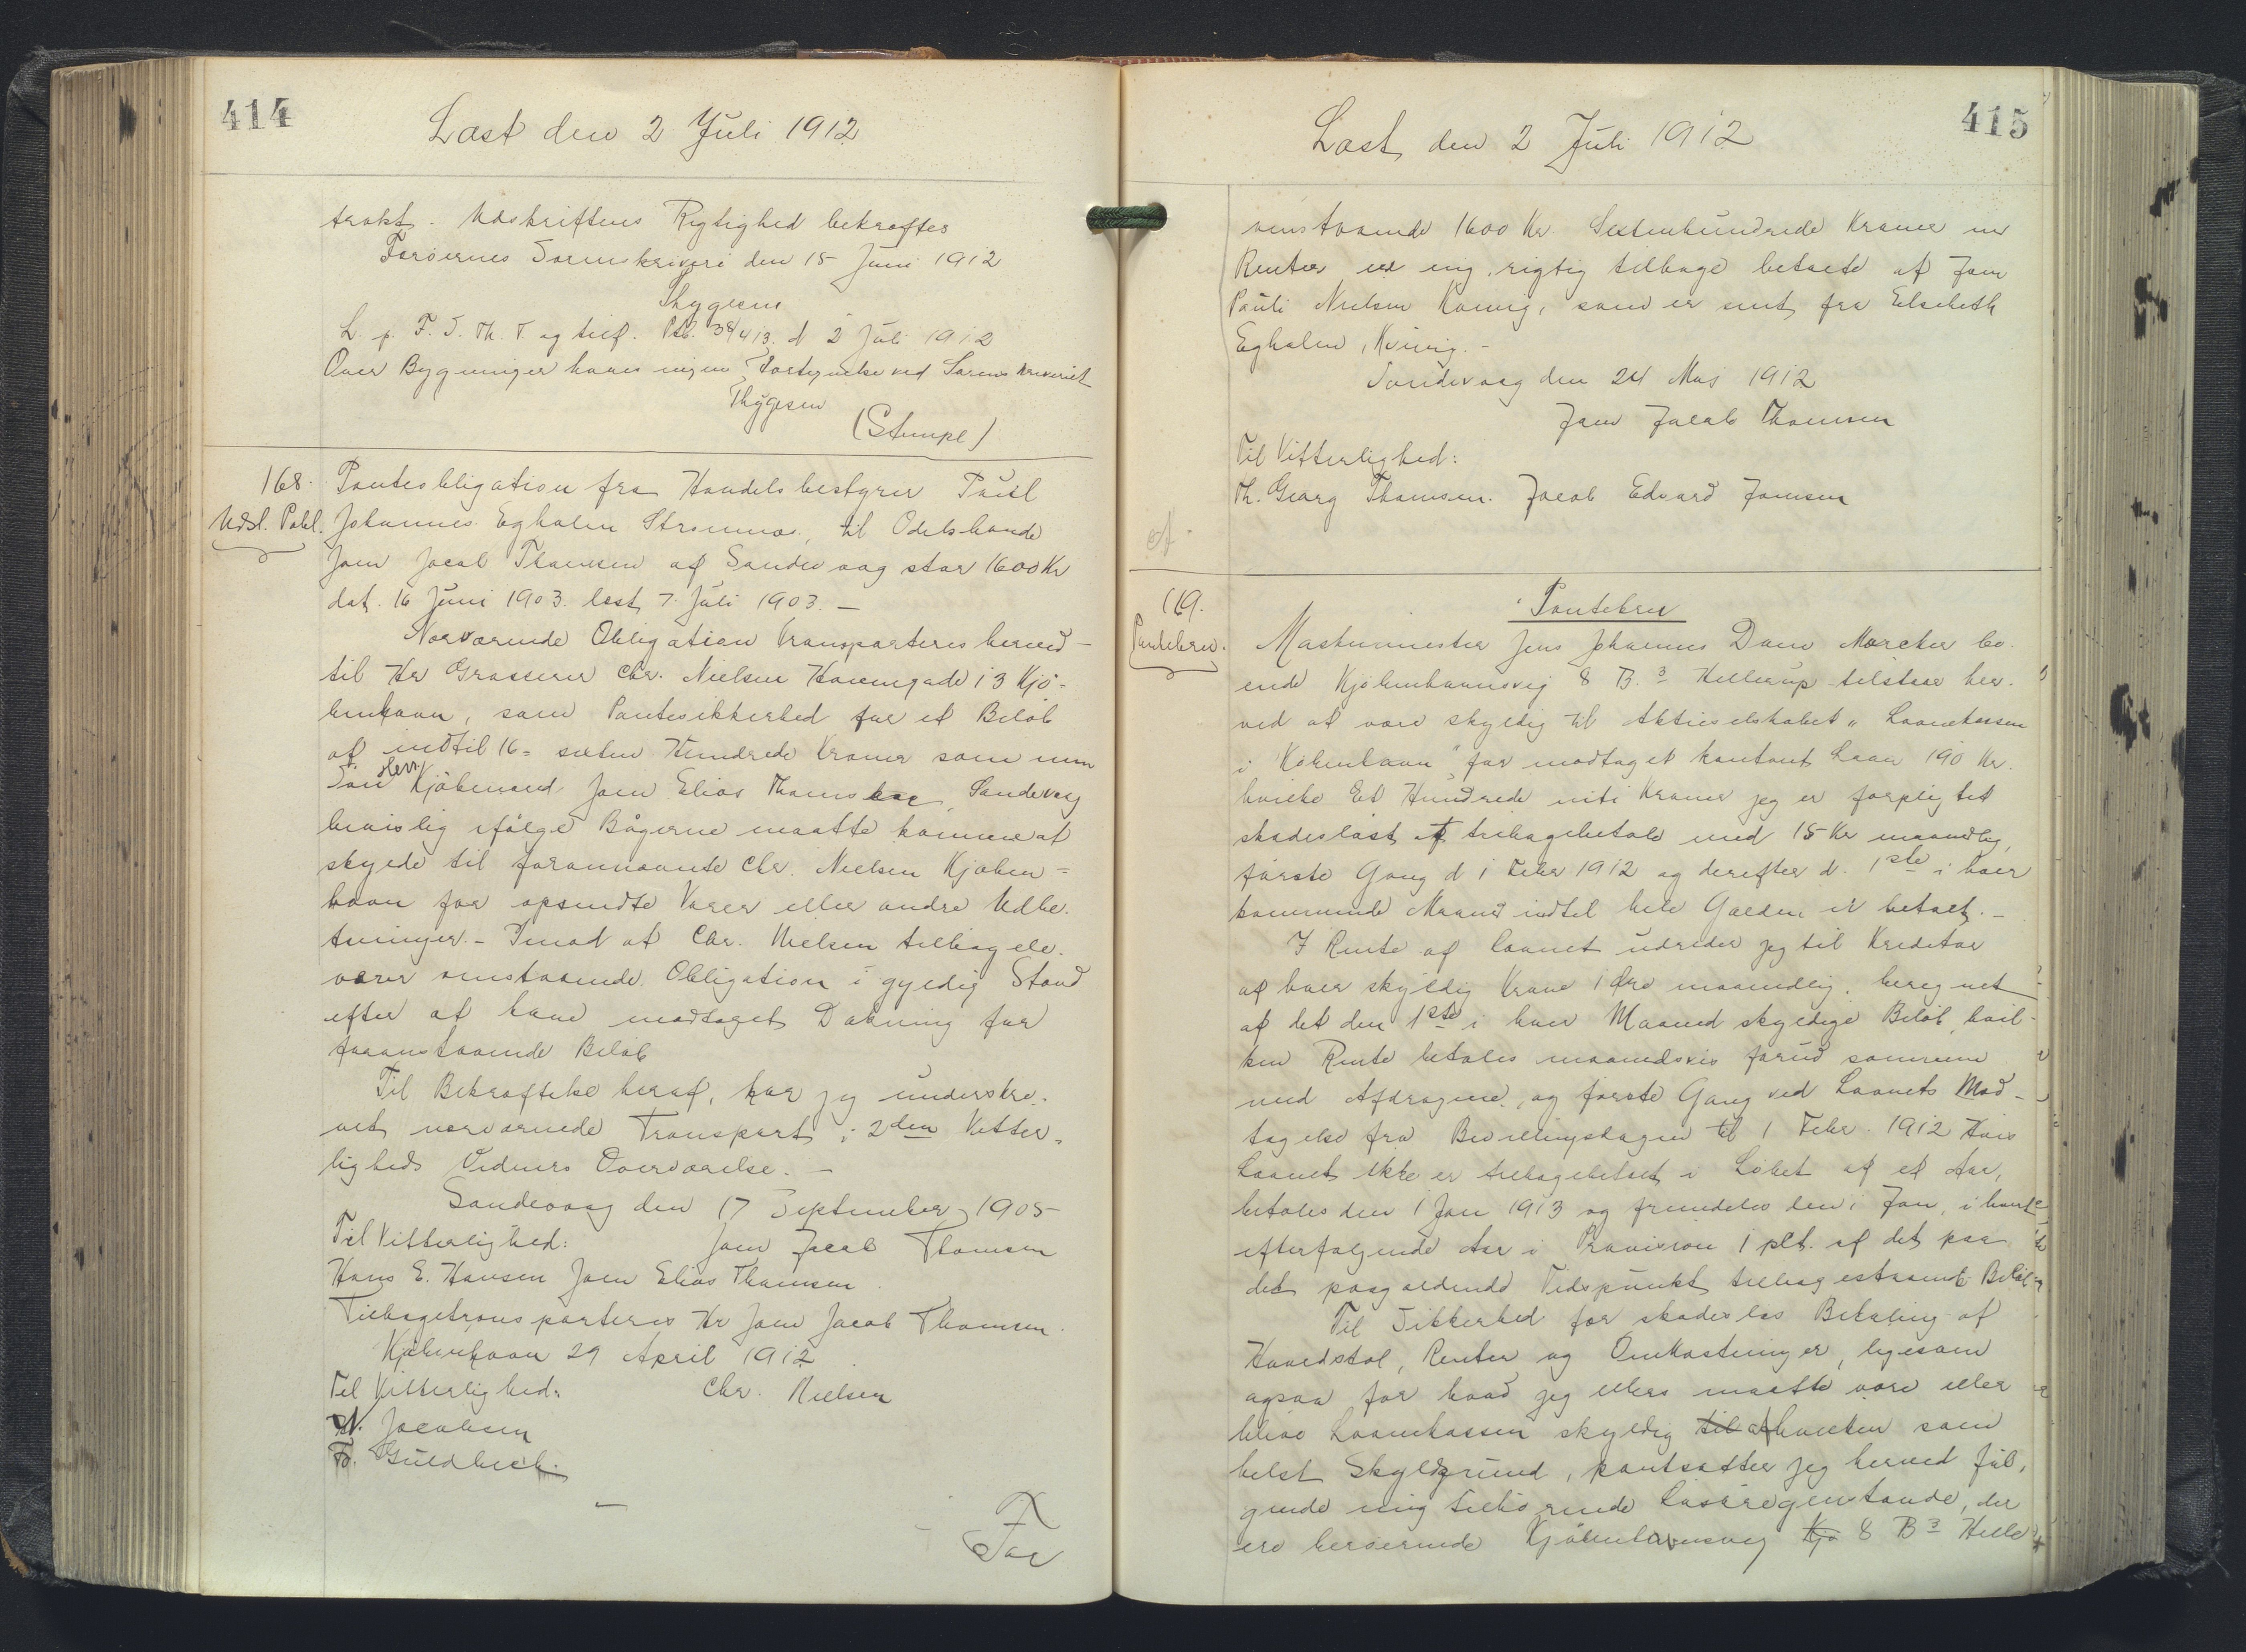 414
Læst den 2 Juli 1912
trakt. Udskriftens Rigtighed bekræftes
Færøernes Sorenskriveri den 15 Juni 1912
Thygesen
L. p. F. S. Th. T. og tilf. Ptb. 38/413. d 2 Juli 1912
Over Bygninger haves ingen Fortegnelse ved Sorenskriveriet
Thygesen
(Stempl)
168.
Udsl. Pobl.
Panteobligation fra Handelsbestyrer Poul
Johannes Egholm Strømnæs, til Odelsbonde
Joen Jacob Thomsen af Sandevaag stor 1600 Kr
dat. 16 Juni 1903. læst 7. Juli 1903. —
Nærværende Obligation transporteres herved
til Hr Grosserer Chr. Nielsen Havnegade 13 Kjø-
benhavn, som Pantesikkerhed for et Beløb
af indtil 16 = sexten Hundrede Kroner som min
Søn Herr Kjøbmand Joen Elias Thomsen, Sandevaag
bevislig ifølge Bøgerne maatte komme at
skylde til forannævnte Chr. Nielsen Kjøben=
havn for opsendte Varer eller andre Udbe-
talinger. - Imod at Chr. Nielsen tilbagele-
verer omstaaende Obligation i gyldig Stand
efter at have modtaget Dækning for
foranstaaende Beløb
Til Bekræftelse heraf, har jeg underskre-
vet nærværende Transport i 2den Vitter-
ligheds Vidners Overværelse. —
Sandevaag den 17 September 1905
Til Vitterlighed: Joen Jacob Thomsen
Hans E. Hansen Joen Elias Thomsen
Tilbagetransporteres Hr Joen Jacob Thomsen.
Kjøbenhavn 29 April 1912
Til Vitterlighed: Chr. Nielsen
N. Jacobsen
Fr. Guldbech.
For
415
Læst den 2 Juli 1912
omstaaende 1600 Kr Sextenhundrede Kroner m
Renter er mig rigtig tilbage betalte af Joen
Pauli Nielsen Kvivig, som er sent fra Elsebeth
Egholm, Kvivig. -
Sandevaag den 24 Maj 1912
Joen Jacob Thomsen
Til Vitterlighed:
Th. Georg Thomsen. Jacob Edvard Joensen
Af.
169.
Pantebrev.
Pantebrev
Maskinmester Jens Johannes Dam Mørcker bo-
ende Kjøbenhavnsvej 8 B.3 Hellerup tilstaar her-
ved at være skyldig til Aktieselskabet „Laanekassen
i København“ for modtaget kontant Laan 190 Kr.
hvilke Et Hundrede niti Kroner jeg er forpligtet
skadesløst at tilbagebetale med 15 Kr maanedlig,
første Gang d 1 Febr 1912 og derefter d. 1ste i hver
kommende Maaned indtil hele Gælden er betalt. —
I Rente af Laanet udreder jeg til Kreditor
af hver skyldig Krone 1 Øre maanedlig, beregnet
af det den 1ste i hver Maaned skyldige Beløb, hvil-
ken Rente betales maanedsvis forud sammen
med Afdragene, og første Gang ved Laanets Mod-
tagelse fra Bevillingsdagen til 1 Febr. 1912 Hvis
Laanet ikke er tilbagebetalt i Løbet af et Aar,
betales den 1 Jan 1913 og fremdeles den 1 Jan, i hvert
efterfølgende Aar i Provision 1 pCt. af det paa
det paagældende Tidspunkt tilbagestaaende Beløb
Til Sikkerhed for skadesløs Betaling af
Hovedstol, Renter og Omkostninger, ligesom
ogsaa for hvad jeg ellers maatte være eller
blive Laanekassen skyldig til af hvilken som
helst Skyldgrund, pantsætter jeg herved føl-
gende mig tilhørende Løsøregenstande, der
ero beroernde Kjøbenhavnsvej Kjø 8 B3 Helle